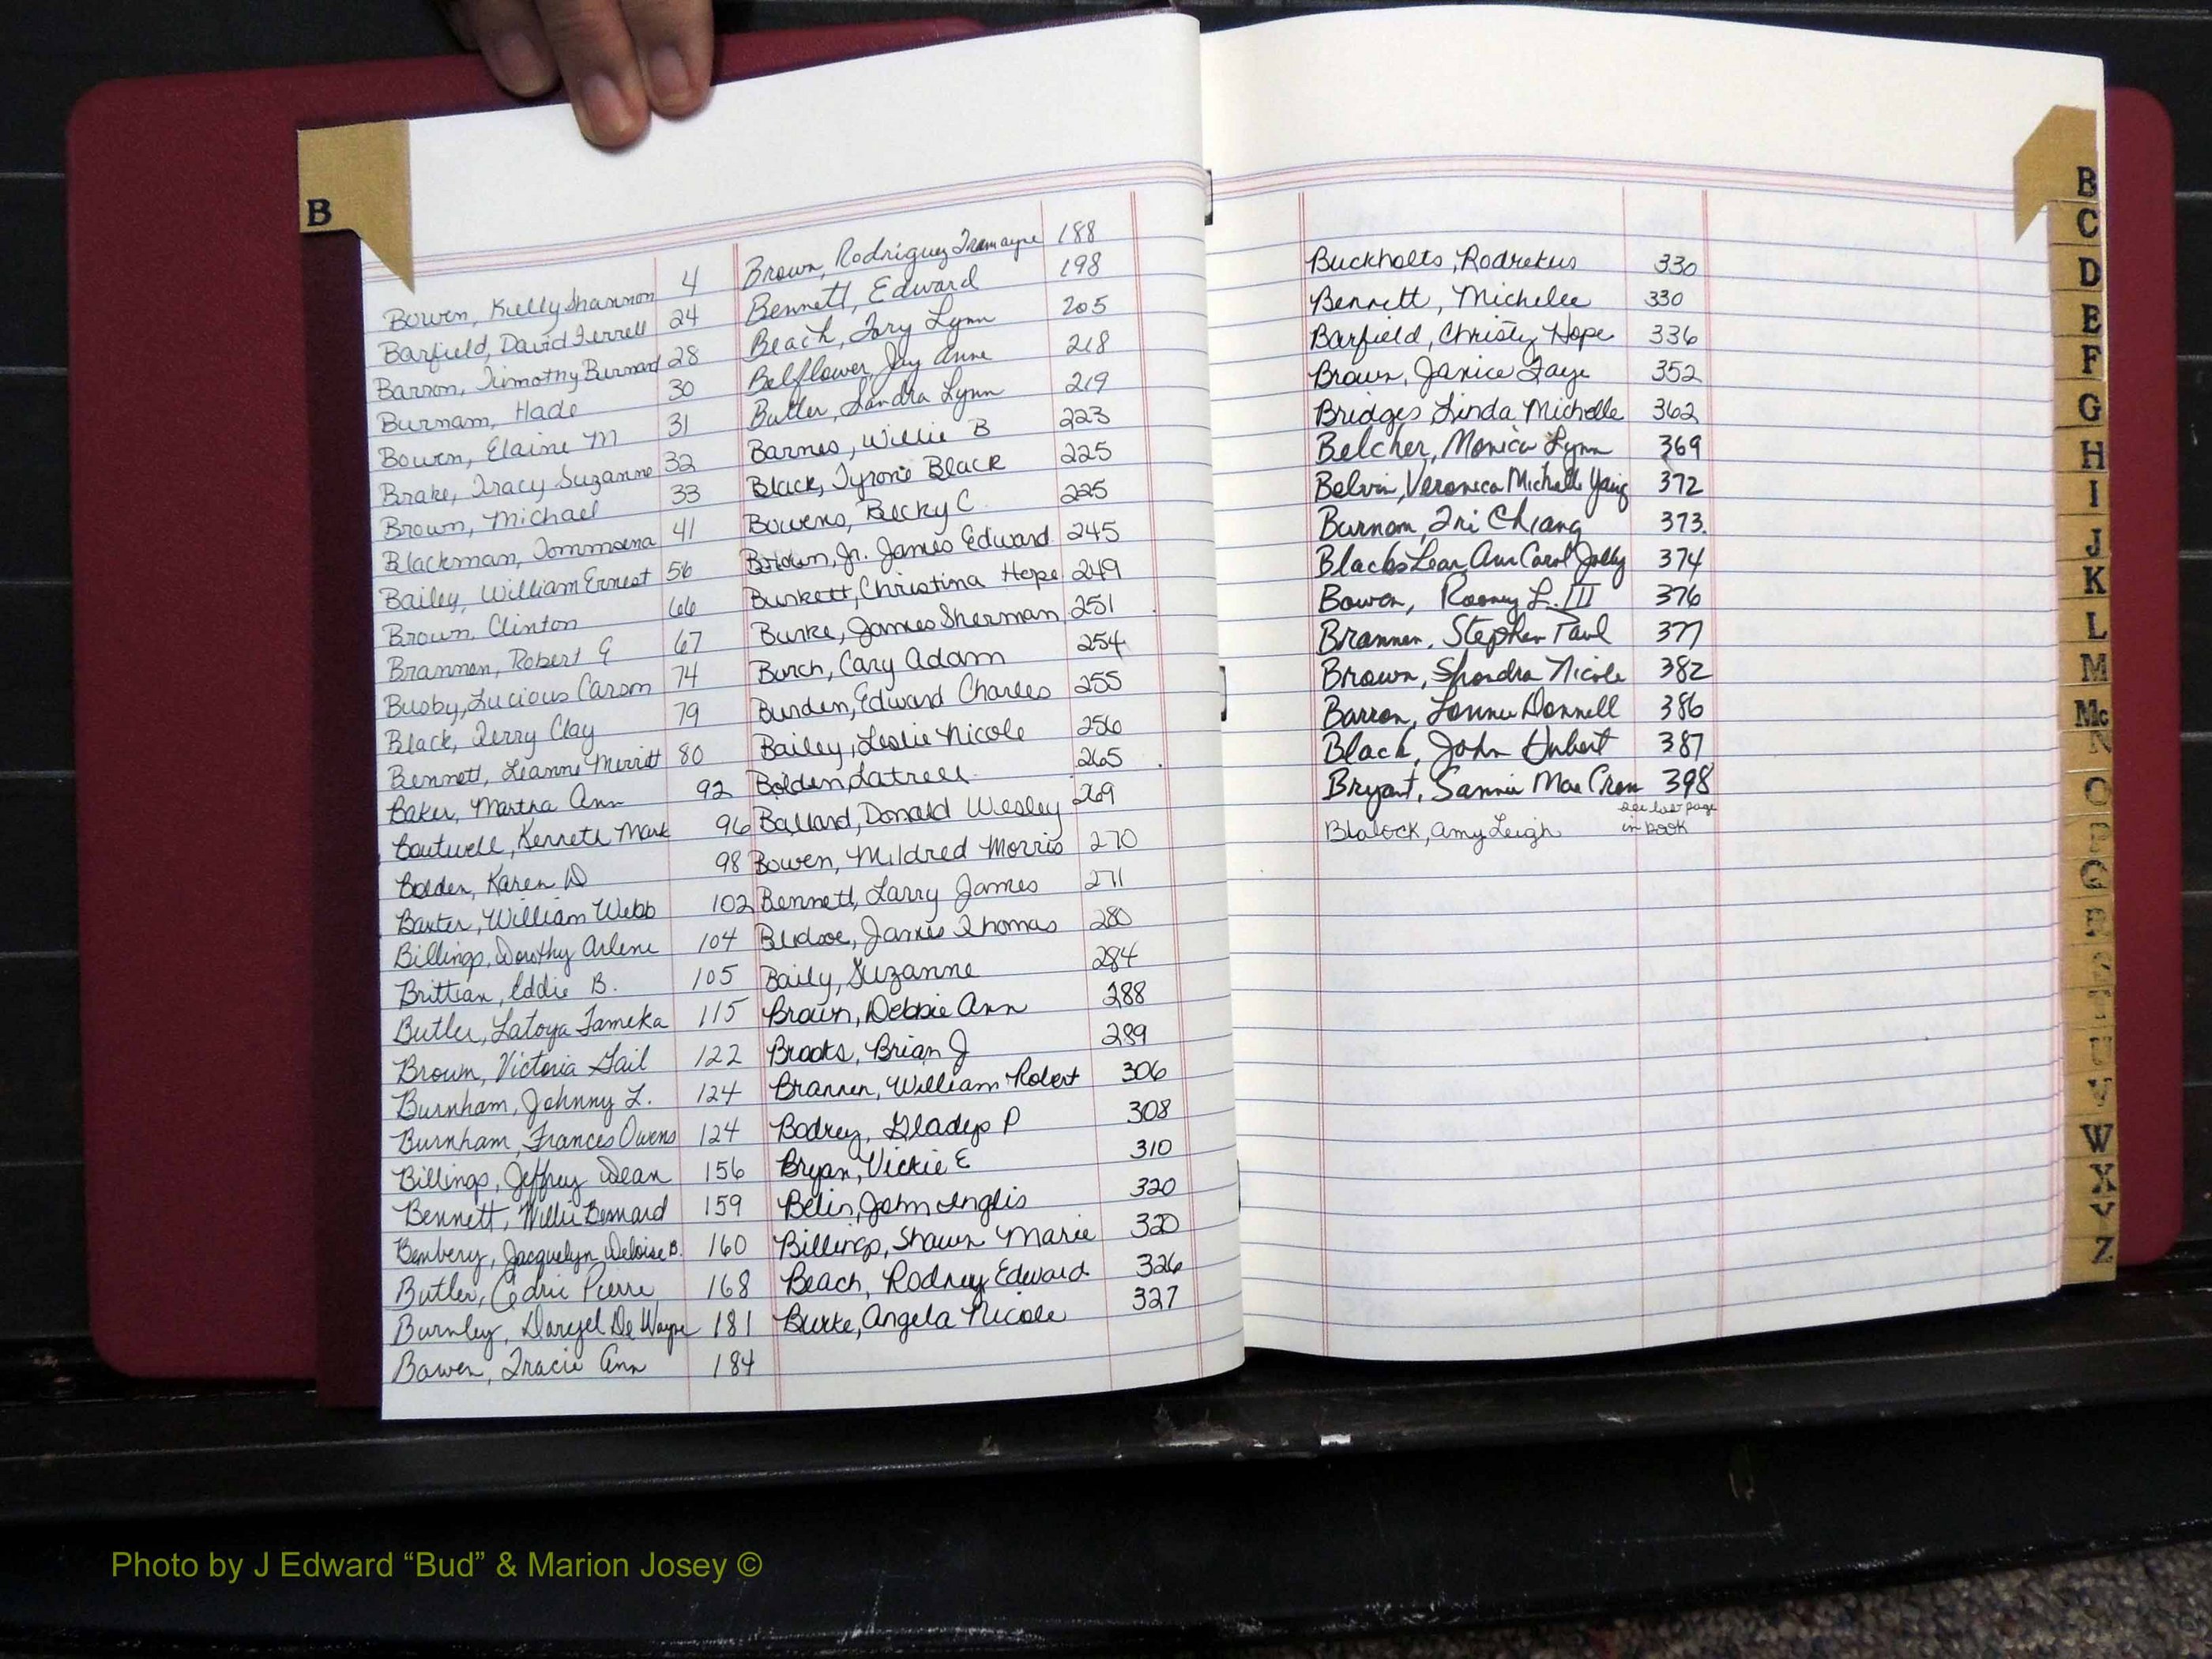 B
Bowen, Kelly Shannon 4
Barfield, David Terrell 24
Barron, Timothy Burnard 28
Burnam, Hade 30
Bowen, Elaine M 31
Brake, Tracy Suzanne 32
Brown, Michael 33
Blackman, 41
Bailey, William Ernest 56
Brown, Clinton 66
Brannen, Robert G 67
Busby, Lucious Carson 74
Black, Terry Clay 79
Bennett, Leanne Merritt 80
Baker, Martha Ann 92
Boutwell, Kenneth Mark 96
Bolden, Karen D 98
Baxter, William Webb 102
Billings, Dorothy Arlene 104
Brittian, Eddie B. 105
Butler, Latoya Tameka 115
Brown, Victoria Gail 122
Burnham, Johnny L. 124
Burnham, Frances Owens 124
Billings, Jeffrey Dean 156
Bennett, Willie Bernard 159
Benbery, Jacquelyn Deloise B. 160
Butler, Cedric Pierre 168
Burnley, Daryel De Wayne 181
Bowen, Tracie Ann 184
Brown, Rodriguez Tramayne 188
Bennett, Edward 198
Beach, Tory Lynn 205
Belflower, Jay Anne 218
Butler, Sandra Lynn 219
Barnes, Willie B 223
Black, Tyrone Black 225
Bowens, Becky C. 225
Brown, Jr. James Edward 245
Burkett, Christina Hope 249
Burke, James Sherman 251
Burch, Cary Adam 254
Burden, Edward Charles 255
Bailey, Leslie Nicole 256
Bolden, Latrell 265
Ballard, Donald Wesley 269
Bowen, Mildred Morris 270
Bennett, Larry James 271
Bledsoe, James Thomas 280
Baily, Suzanne 284
Brown, Debbie Ann 288
Brooks, Brian J 289
Brannen, William Robert 306
Bodrey, Gladys P 308
Bryan, Vickie E 310
Belin, John Inglis 320
Billings, Shawn Marie 320
Beach, Rodney Edward 326
Burke, Angela Nicole 327
Buckholts, Rodrekus 330
Bennett, Michelee 330
Barfield, Christy Hope 336
Brown, Janice Faye 352
Bridges, Linda Michelle 362
Belcher, Monica Lynn 369
Belvin, Veronica Michelle 372
Burnam, Tri Chiang 373.
Blacks Lear, Ann Carol Jolly 374
Bowen, Rooney L. III 376
Brannen, Stephen Paul 377
Brown, Shondra Nicole 382
Barron, Lonnie Donnell 386
Black, John Hubert 387
Bryant, Sannie Mae Crom 398
Blalock, Amy Leigh see last page
in book
B
C
D
E
F
G
H
I
J
K
L
M
Mc
N
O
P
Q
R
S
T
U
V
W
X
Y
Z
Photo by J Edward “Bud” & Marion Josey ©